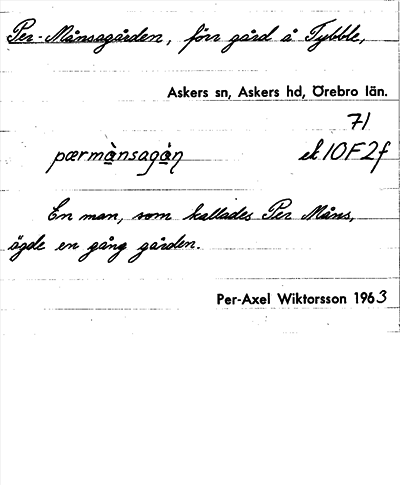 Per-Månsagården, förr gård å Tybble,
Askers sn, Askers hd, Örebro län.
71
pærmànsagåṇ ek 10F2f
En man, som kallades Per Måns,
ägde en gång gården.
Per-Axel Wiktorsson 1963